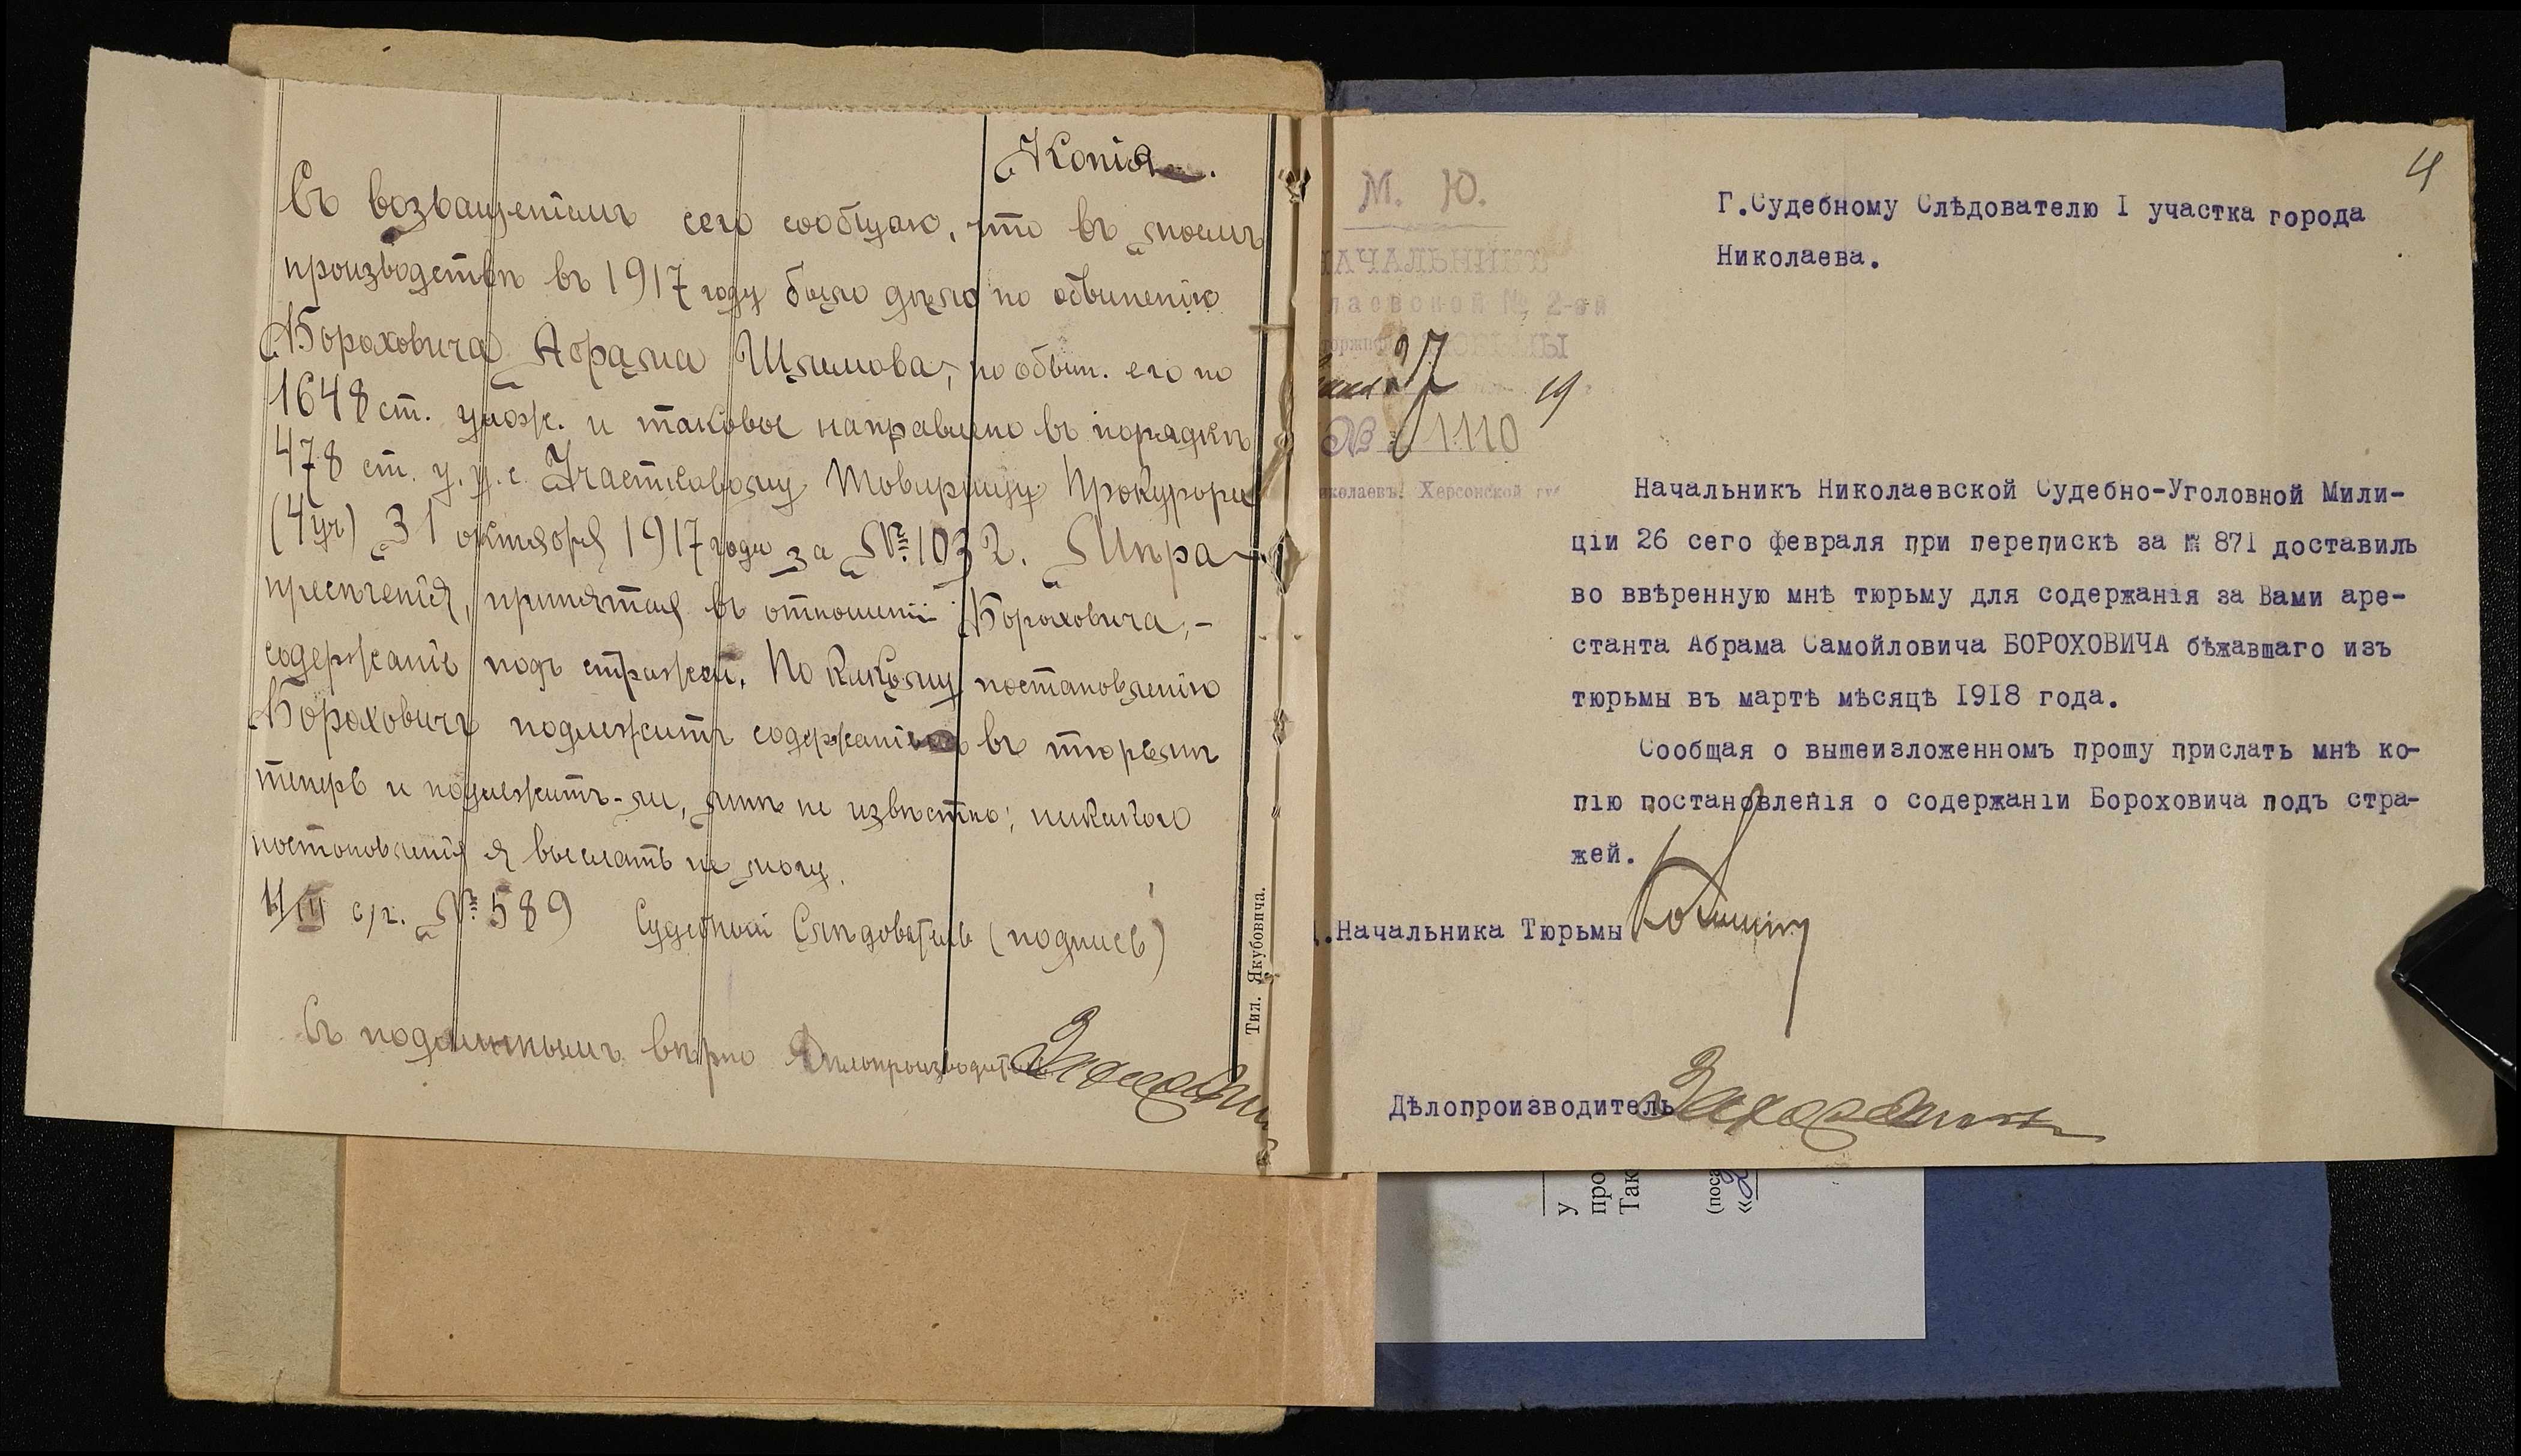 Копія.
Съ возвращеніемъ сего сообщаю, что въ моемъ
производствѣ въ 1917 году было дѣло по обвиненію
Бороховича Абрама Шлемова, по обвин. его по
1648 ст. улож. и таковое направлено въ порядкѣ
478 ст. у. у. с. Участковому Товарищу Прокурора
(4 уч) 31 октября 1917 года за № 1032. Мѣра
пресѣченія, принятая въ отношеніи Бороховича, –
содержаніе подъ стражей. По какому постановленію
Бороховичъ подлежитъ содержанію въ тюрьмѣ
теперь и подлежитъ-ли, мнѣ не извѣстно; никакого
постановленія я выслать не могу.
4/III с/г. № 589 Судебный Слѣдователь (подпись)
Съ подлиннымъ вѣрно Дѣлопроизводитель
Тип. Якубовича.
4
М. Ю.
НАЧАЛЬНИКЪ
лаевской № 2-ой
ТЮРЬМЫ
27
19
№ 1110
иколаевъ, Херсонской губ
Г.Судебному Слѣдователю I участка города
Николаева.
Начальникъ Николаевской Судебно-Уголовной Мили-
ціи 26 сего февраля при перепискѣ за № 871 доставилъ
во ввѣренную мнѣ тюрьму для содержанія за Вами аре-
станта Абрама Самойловича БОРОХОВИЧА бѣжавшаго изъ
тюрьмы въ мартѣ мѣсяцѣ 1918 года.
Сообщая о вышеизложенномъ прошу прислать мнѣ ко-
пію постановленія о содержаніи Бороховича подъ стра-
жей.
.Начальника Тюрьмы
Дѣлопроизводитель
у
про
Так
(пос
«